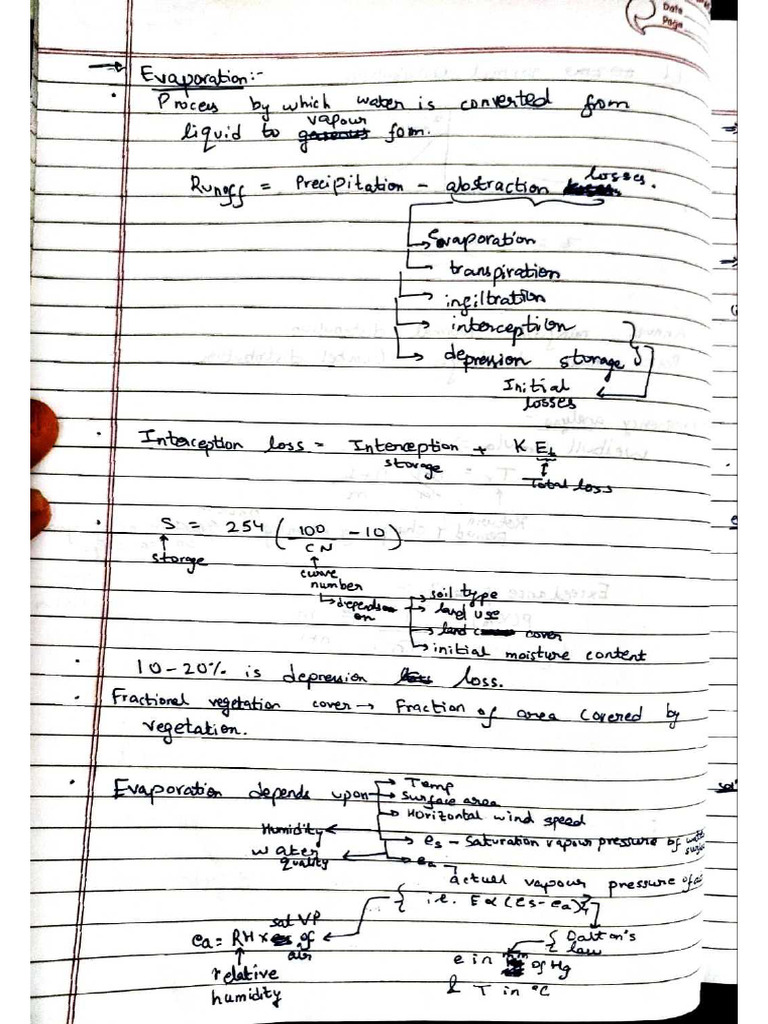 Date
Page
→ Evaporation:-
• Process by which water is converted from
liquid to vapour form.
Runoff = Precipitation - abstraction losses.
→ evaporation
→ transpiration
→ infiltration
→ interception
→ depression storage
Initial
losses
• Interception loss = Interception storage + K Et
Total loss
• S = 254 (100/CN - 10)
storage
curve
number
→ depends on
→ soil type
→ land use
→ land cover
→ initial moisture content
• 10-20% is depression loss.
• Fractional vegetation cover → Fraction of area covered by
vegetation.
• Evaporation depends upon
→ Temp
→ Surface area
→ Horizontal wind speed
Humidity ←
→ es - Saturation vapour pressure of water surface
water quality ←
→ ea
actual vapour pressure of air
{ i.e. E ∝ (es - ea) }
ea = RH × sat VP of air
{ Dalton's law
relative
humidity
e in mm of Hg
& T in °C